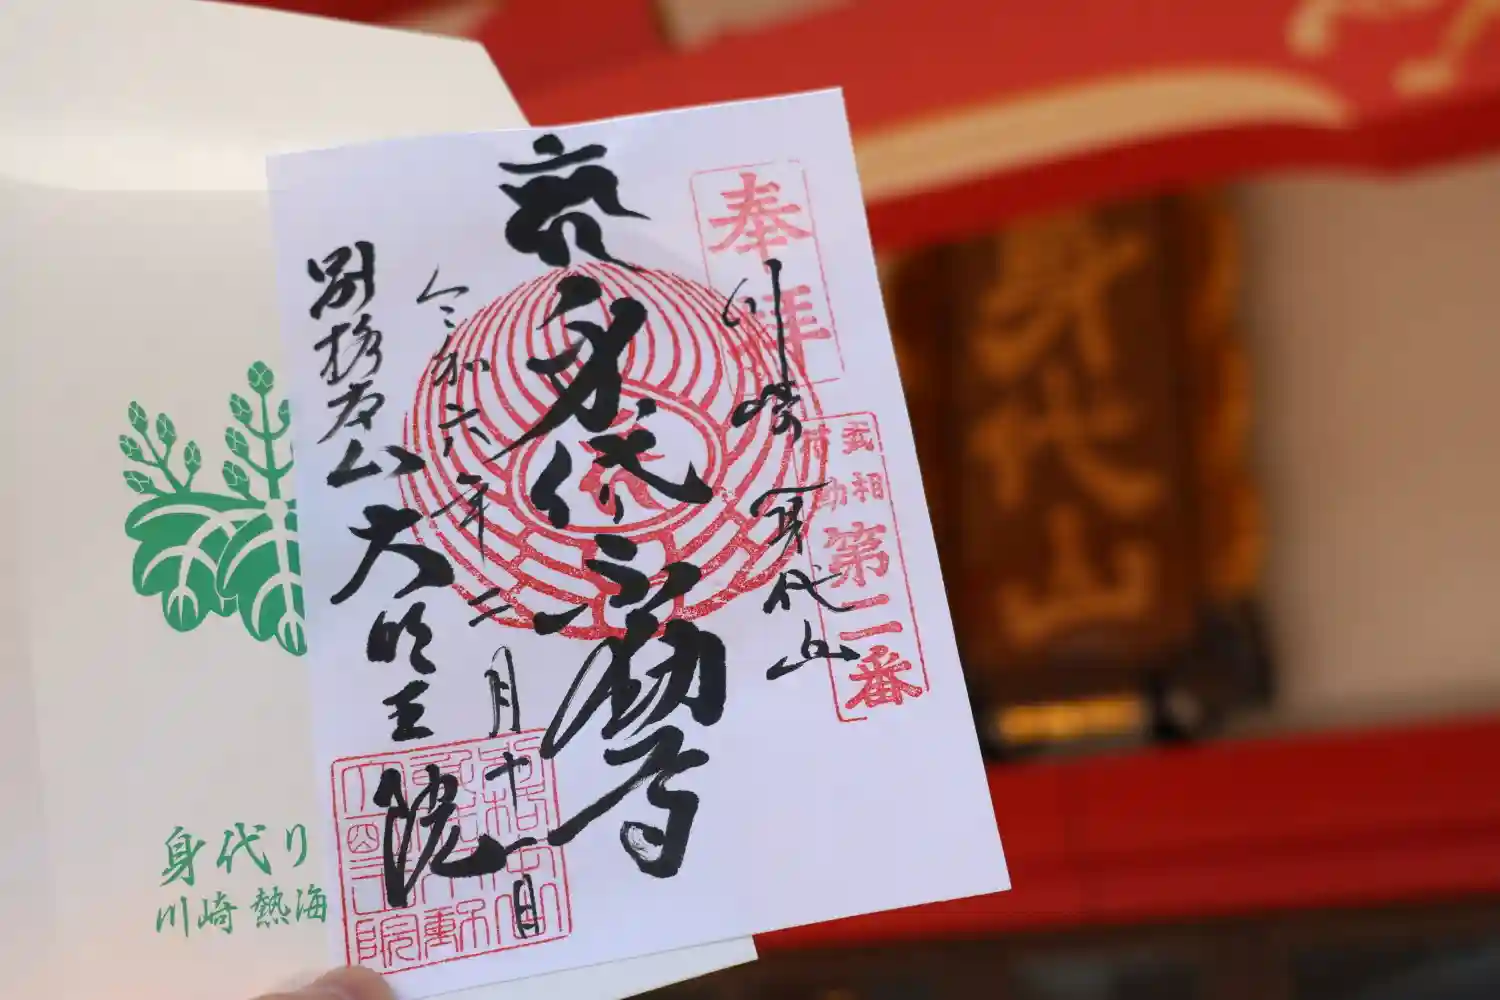 奉拝
川崎
身代山
武相
第二番
身代不動尊
令和六年
二月十一日
別格本山
大明王院
身代り
川崎 熱海
身代山